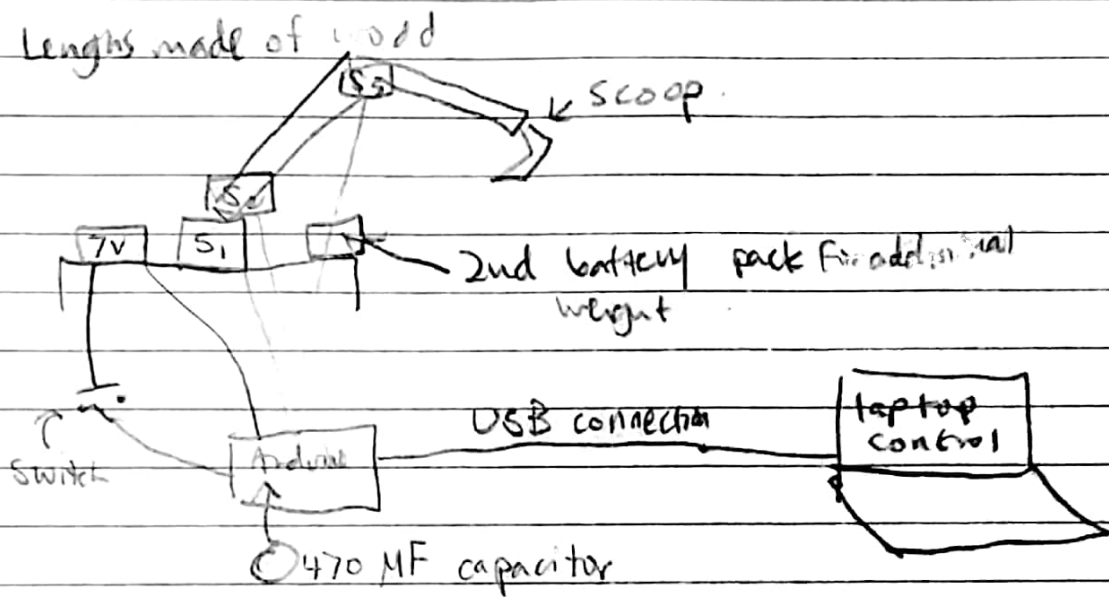 Lenghs made of wood
S3
scoop
S2
7V
S1
2nd battery pack For additional
weight
USB connection
laptop
control
Switch
Arduino
470 MF capacitor